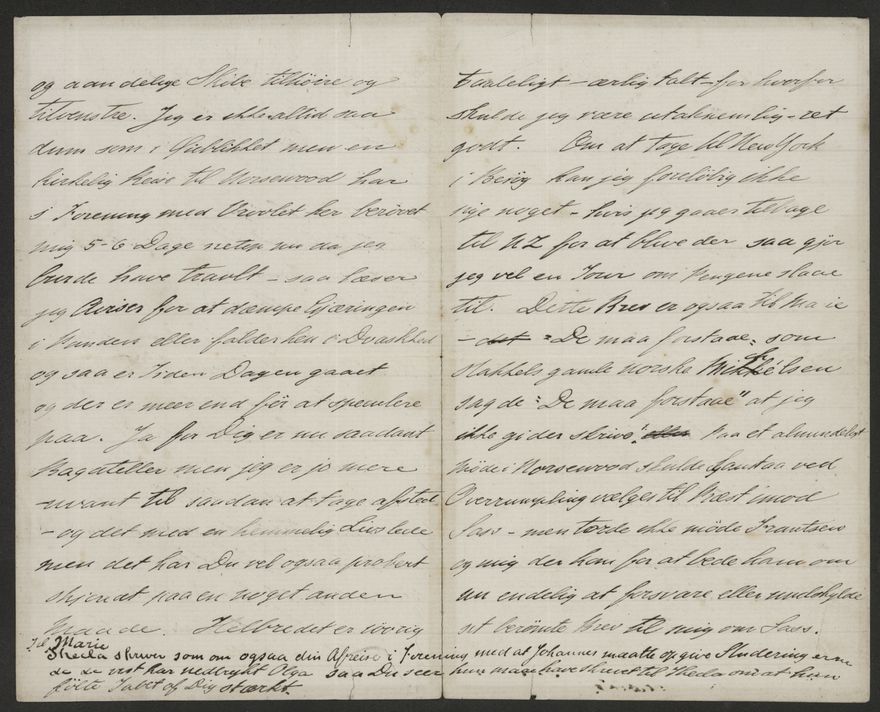 og aandelige Skibe tilhöire og
tilvenstre. Jeg er ikke altid saa
dum som i Öieblikket men en
kirkelig Reise til Norsewood har
i Forening med Uveiret her berövet
mig 5-6 Dage netop nu da jeg
burde have travlt - saa læser
jeg Aviser for at dæmpe Gjæringen
i Aanden eller falder hen i Dvaskhed
og saa er Tiden Dagen gaaet
og der er meer end för at spenlere
paa. Ja for Dig er nu saadant
Bagateller men jeg er jo mere
uvant til saadan at tage afsted
- og det med en hemmelig Livslede
men det har Du vel ogsaa probert
skjöndt paa en noget anden
Maade. Helbredet er
taaleligt - ærlig talt - for hvorfor
skulde jeg være utaknemlig - ret
godt. Om at tage til New York
i Besög kan jeg foreløbig ikke
sige noget - hvis jeg gaaer tilbage
til NZ for at blive der saa gjør
jeg vel en Tour om Pengene slaae
til. Dette Brev er ogsaa til Marie
- det "De maa forstaae", som
Stakkels gamle norske Mikkelsen
sagde: "De maa forstaae" at jeg
ikke gider skrive". Paa et almindeligt
Möde i Norsewood skulde ved
Overrumpling vælges til Præst imod
Sass - men torde ikke möde Frantsen
og mig der kom for at bede ham om
nu endelig at forsvare eller undskylde
sit berömte Brev til mig om Sass.
Til Marie
Thecla skriver som om ogsaa din Afreise i Forening med at Johannes maatte opgive Studering
de vist har nedtrykt Olga saa Du seer hun maa have skrevet til Thecla om at hun
følte Tabet af Dig stærkt.